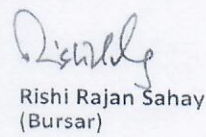 Rishi Rajan Sahay
(Bursar)